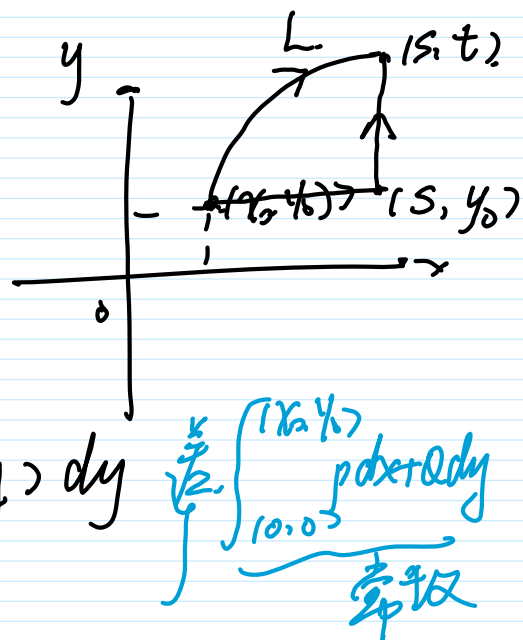 L.
y
(s, t).
(x₀, y₀)
(s, y₀)
x
0
) dy
差.
∫_{(0,0)}^{(x₀, y₀)} Pdx+Qdy
常数